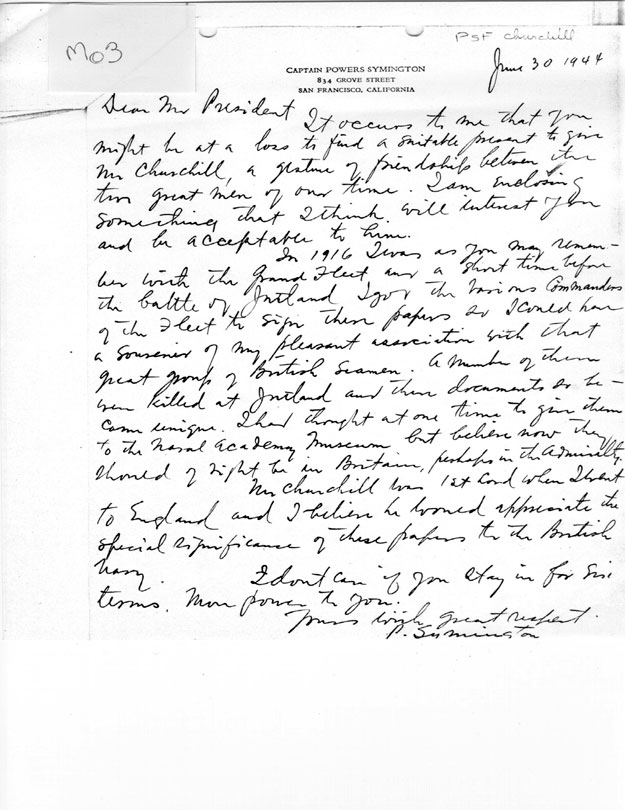 Mo3
PSF Churchill
CAPTAIN POWERS SYMINGTON
834 GROVE STREET
SAN FRANCISCO, CALIFORNIA
June 30 1944
Dear Mr President
It occurs to me that you
might be at a loss to find a suitable present to give
Mr Churchill, a gesture of friendship between the
two great men of our time. I am enclosing
something that I think will interest you
and be acceptable to him.
In 1916 I was as you may remem-
ber with the Grand Fleet and a short time before
the battle of Jutland I got the various Commanders
of the Fleet to sign these papers so I could have
a souvenir of my pleasant association with that
great group of British Seamen. A number of them
were killed at Jutland and these documents so be-
came unique. I had thought at one time to give them
to the Naval Academy Museum but believe now they
should of right be in Britain, perhaps in the Admiralty.
Mr Churchill was 1st Lord when I went
to England and I believe he would appreciate the
special significance of these papers to the British
Navy.
I dont care if you stay in for six
terms. More power to you.
Yours with great respect.
P. Symington